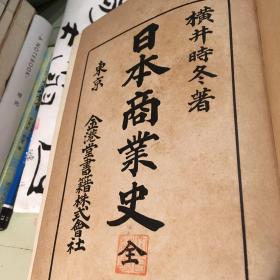 横井時冬著
日本商業史 全
東京
金港堂書籍株式會社